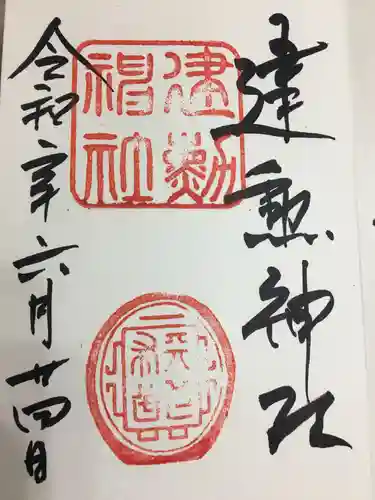 建勲神社
建勲
神社
令和元年六月廿四日